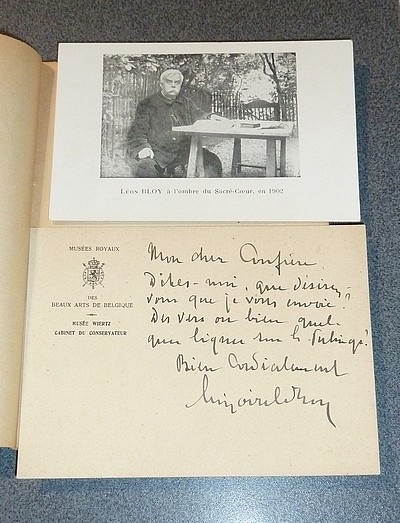 LÉON BLOY à l'ombre du Sacré-Cœur, en 1902
MUSÉES ROYAUX
DES
BEAUX ARTS DE BELGIQUE
MUSÉE WIERTZ
CABINET DU CONSERVATEUR
Mon cher Confrère,
Dites-moi, que désirez-
vous que je vous envoie?
Des vers ou bien quel-
ques lignes sur le
Bien Cordialement